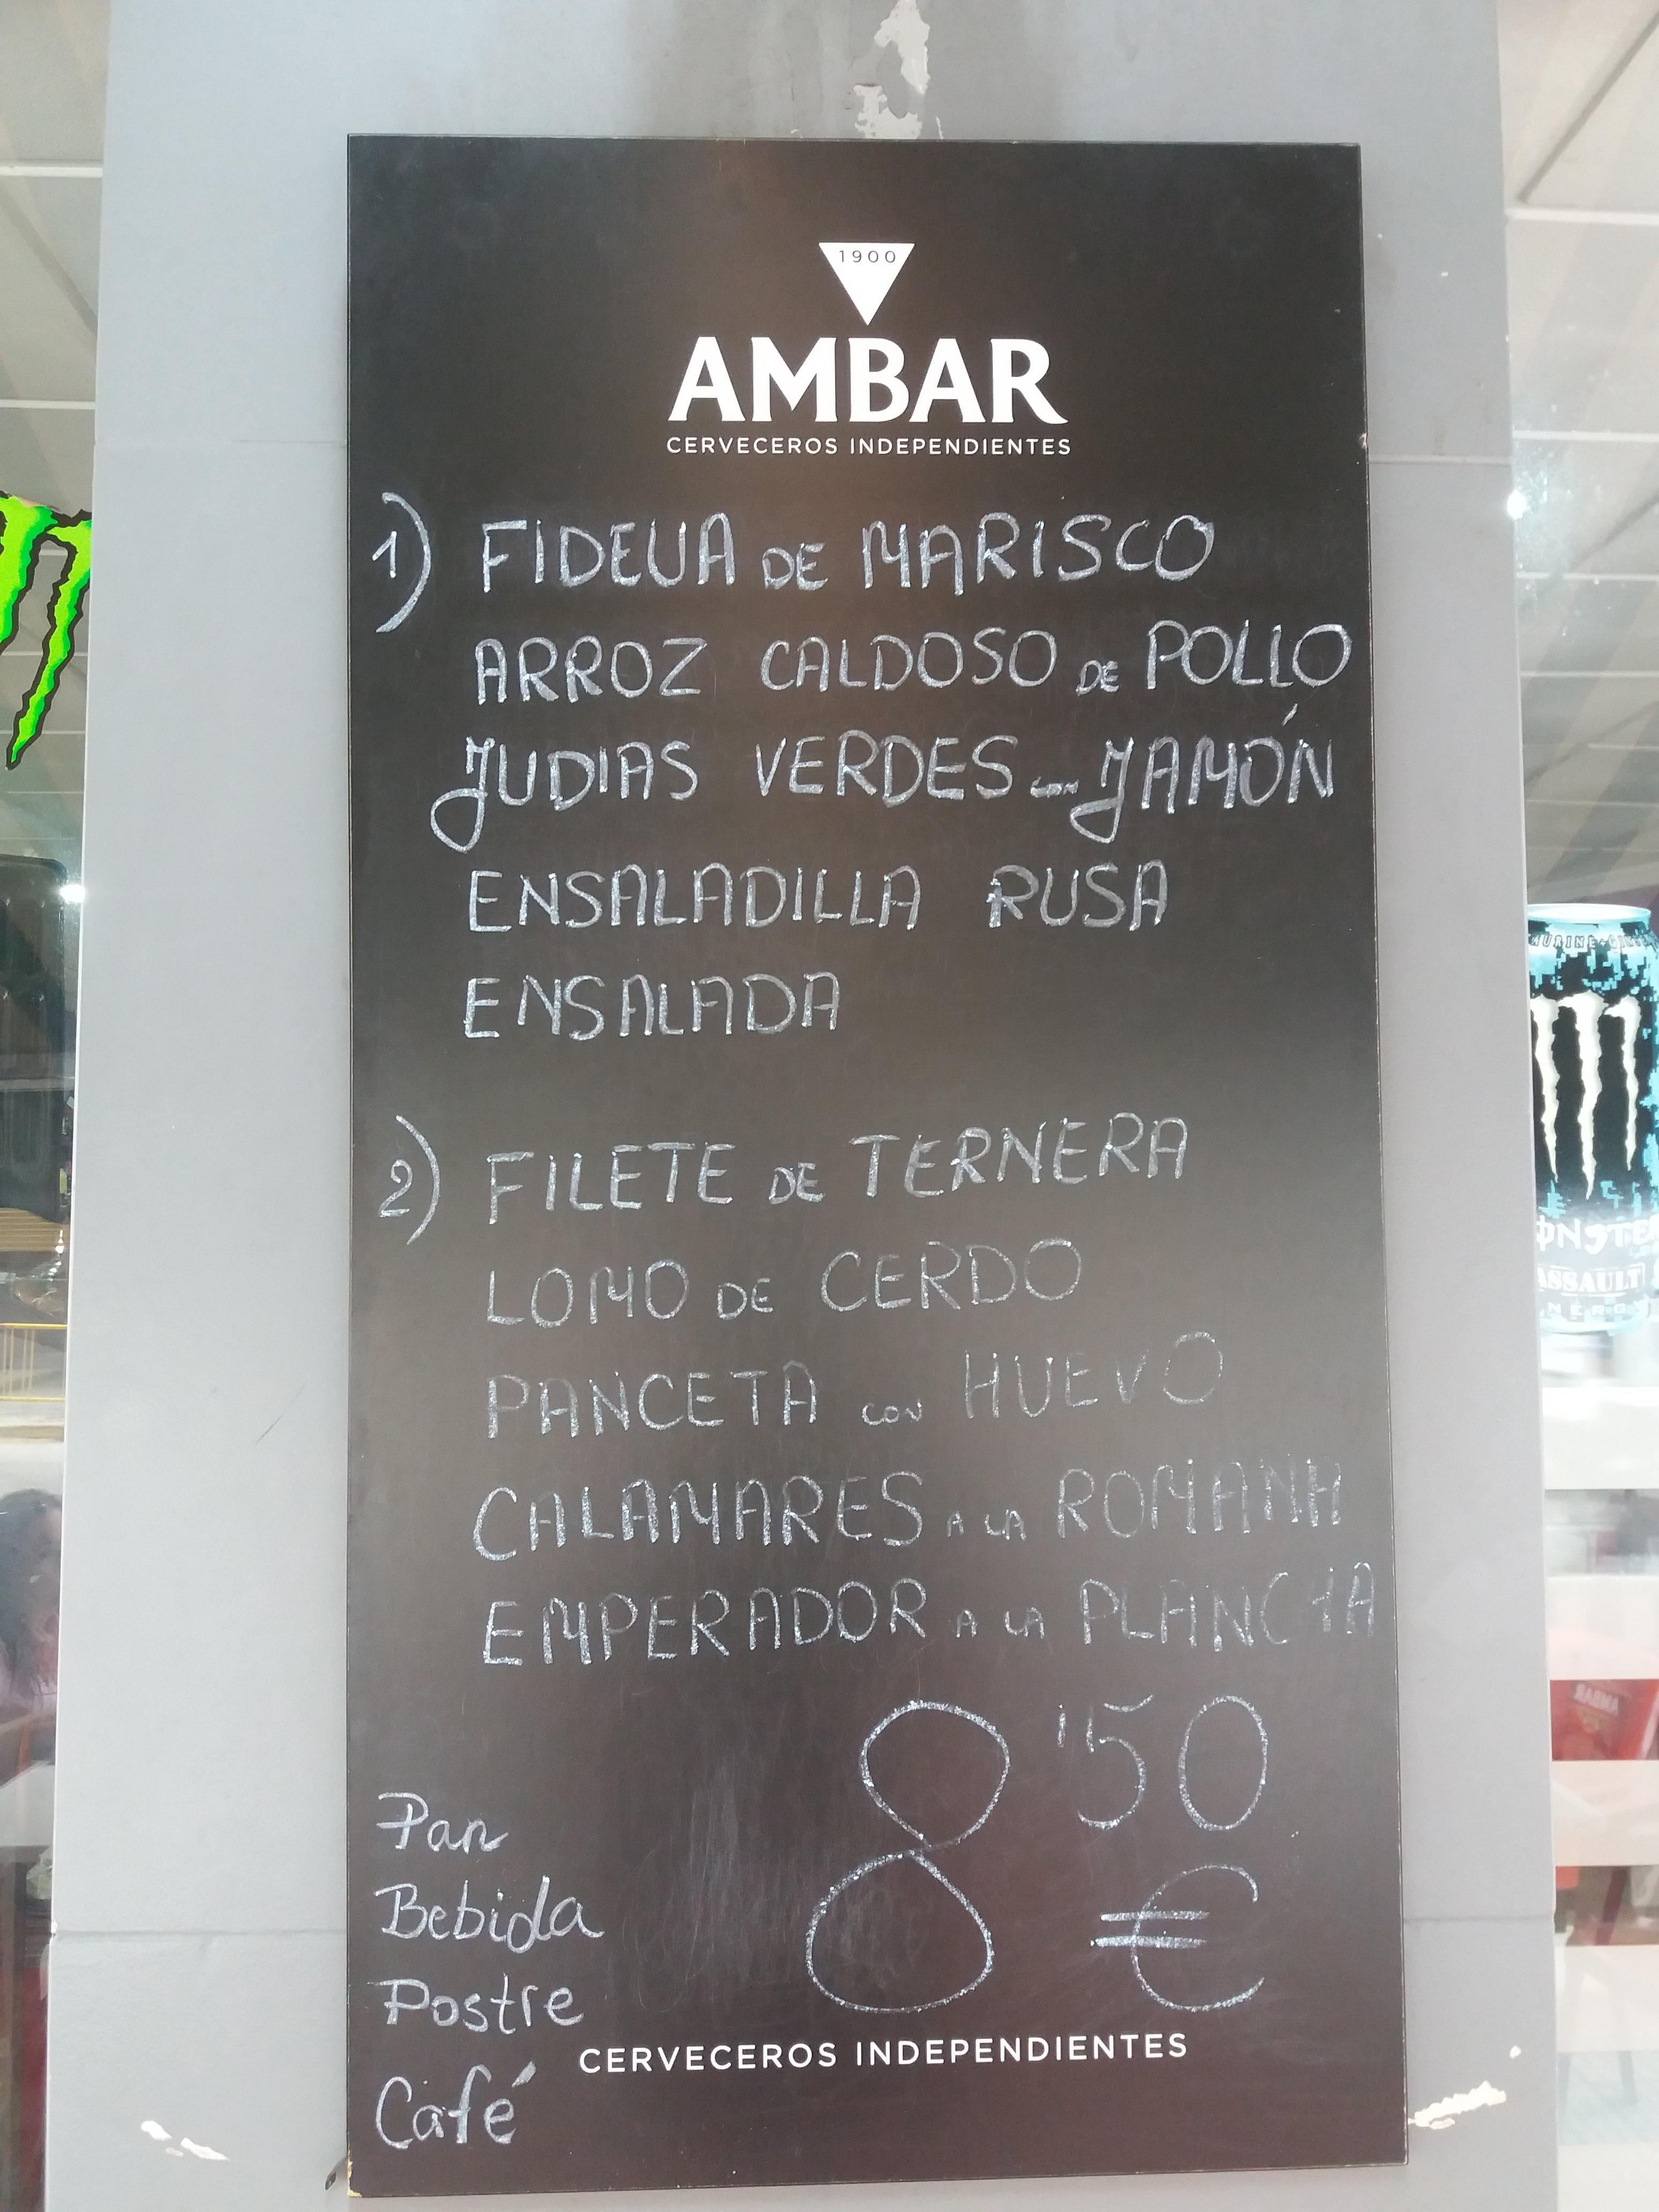 1900
AMBAR
CERVECEROS INDEPENDIENTES
1) FIDEUA DE MARISCO
ARROZ CALDOSO DE POLLO
JUDIAS VERDES con JAMÓN
ENSALADILLA RUSA
ENSALADA
2) FILETE DE TERNERA
LOMO DE CERDO
PANCETA CON HUEVO
CALAMARES A LA ROMANA
EMPERADOR A LA PLANCHA
8'50
€
Pan
Bebida
Postre
Café
CERVECEROS INDEPENDIENTES
ASSAULT
AMBAR